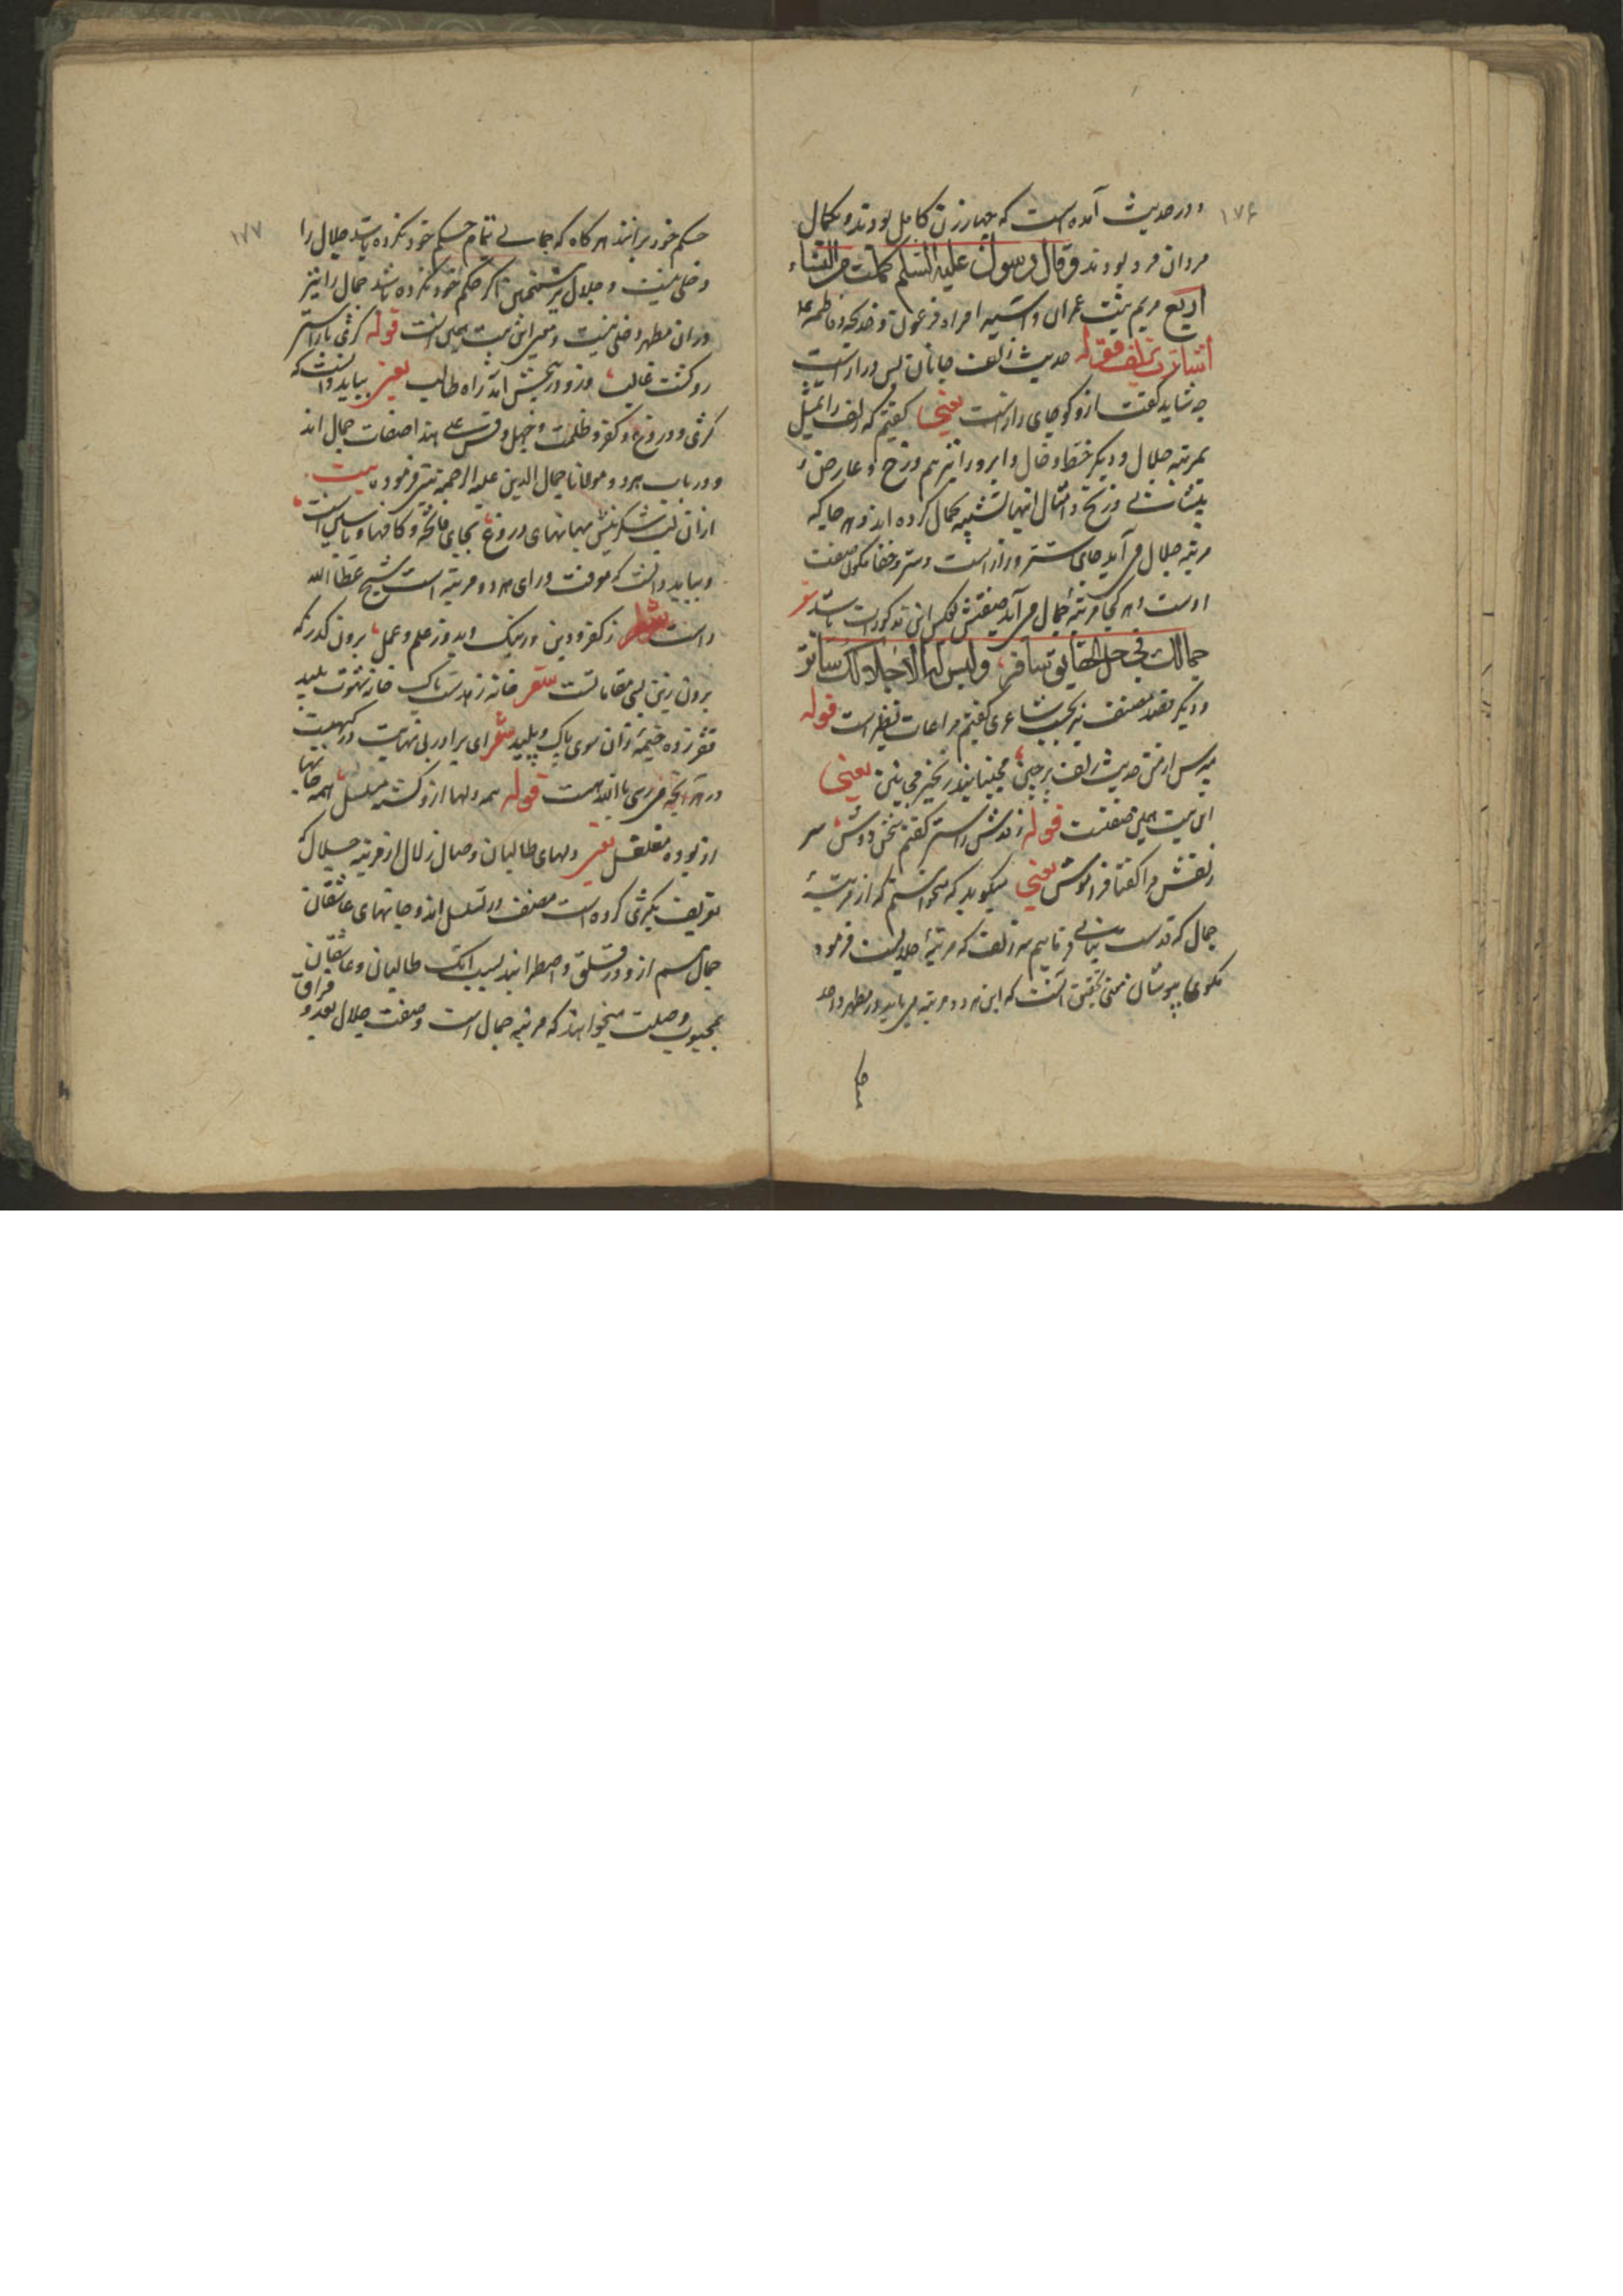 ۱۷۶
و در حدیث آمده است که چهار زن کامل بودند و بکمال
مردان فرد بودند و قال رسول علیه السلم کملت من النساء
اربع مریم بنت عمران و آسیه امراه فرعون و خدیجه و فاطمه
اشارت بزلف قوله حدیث زلف جانان بس دراز است
چه شاید گفت ازو کو جای راز است یعنی گفتیم که زلف را تمثیل
بمرتبه جلال و دیگر خط و خال و ابرو را نیز هم و رخ و عارض
و امثال اینها تشبیه بجمال کرده اند و هر جا که
مرتبه جلال می آید جای ستر و راز است و ستر و خفا صفت
اوست و هر کجا مرتبه جمال می آید صفتش بعکس این مذکور است باشد شعر
جمالک فی کل الحقایق سافر و لیس له الا جلالک ساتر
و دیگر قصد مصنف نیز بحسب شاعری گفتیم مراعات نظیر است قوله
مپرس از من حدیث زلف پرچین مجنبانید زنجیر مجانین یعنی
این بیت همین صفتست قوله ز قدش راستی گفتم سخن دوش سر
زلفش مرا گفتا فراموش یعنی میگوید که میخواستم که از مرتبه
جمال که قدست بیانی کنم سر زلف که مرتبه جلالیست فرمود
مگوی بپوشان یعنی تحقیق آنست که این هر دو مرتبه می باید در مظهر واحد
حکم
۱۷۷
حکم خود برانند هر گاه که جمالی تمام حکم خود نکرده باشد جلال را
دخلی نیست و جلال نیز همچنین اگر حکم خود نکرده باشد جمال را نیز
در آن مظهر دخلی نیست و معنی این بیت همین است قوله کژی بر راستی
زو گشت غالب وزو در پیچش آمد راه طالب یعنی بباید دانست که
کژی و دروغ و کفر و ظلمت و جهل و قس علی هذا صفات جلال اند
و در باب هر دو مولانا جمال الدین علیه الرحمه نیز فرمود بیت
ازان لب شکرینش بهانهای دروغ بجای فاتحه و کافها و یاسین است
و بباید دانست که معرفت ورای هر دو مرتبه است شیخ عطا الله
راست شعر ز کفر و دین و ز نیک و بد و ز علم و عمل برون گذر که
برون زین بسی مقاماتست شعر خانه زهدست پاک خانه شهوت پلید
فقر زده خیمه زان سوی پاک و پلید شعر ای برادر بی نهایت درگهیست
در هر آنچه می رسی بالله مایست قوله همه دلها ازو گشته مسلسل همه جانها
ازو بوده مقلقل یعنی دلهای طالبان وصال زلال از مرتبه جلال که
تعریف بکژی کرده است مصنف در تسلسل اند و جانهای عاشقان
جمال هم ازو در قلق و اضطرابند بسبب آنک طالبان و عاشقان
بمحبوب وصلت میخواهند که مرتبه جمال است و صفت جلال بعد و فراق